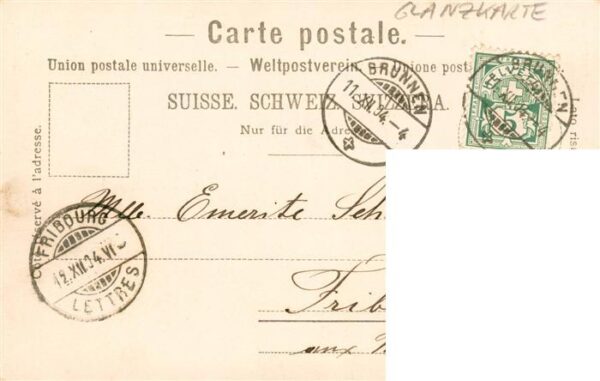 GLANZKARTE
Carte postale.
Union postale universelle. — Weltpostverein. — Unione post
SUISSE. SCHWEIZ. SVIZZERA.
Nur für die Adre
Côté réservé à l'adresse.
BRUNNEN
11.XII.94.-4
BRUNNEN
HELVETIA
5
FRIBOURG
12.XII.94.VI
LETTRES
Mlle. Emerite Sch
Frib
aux